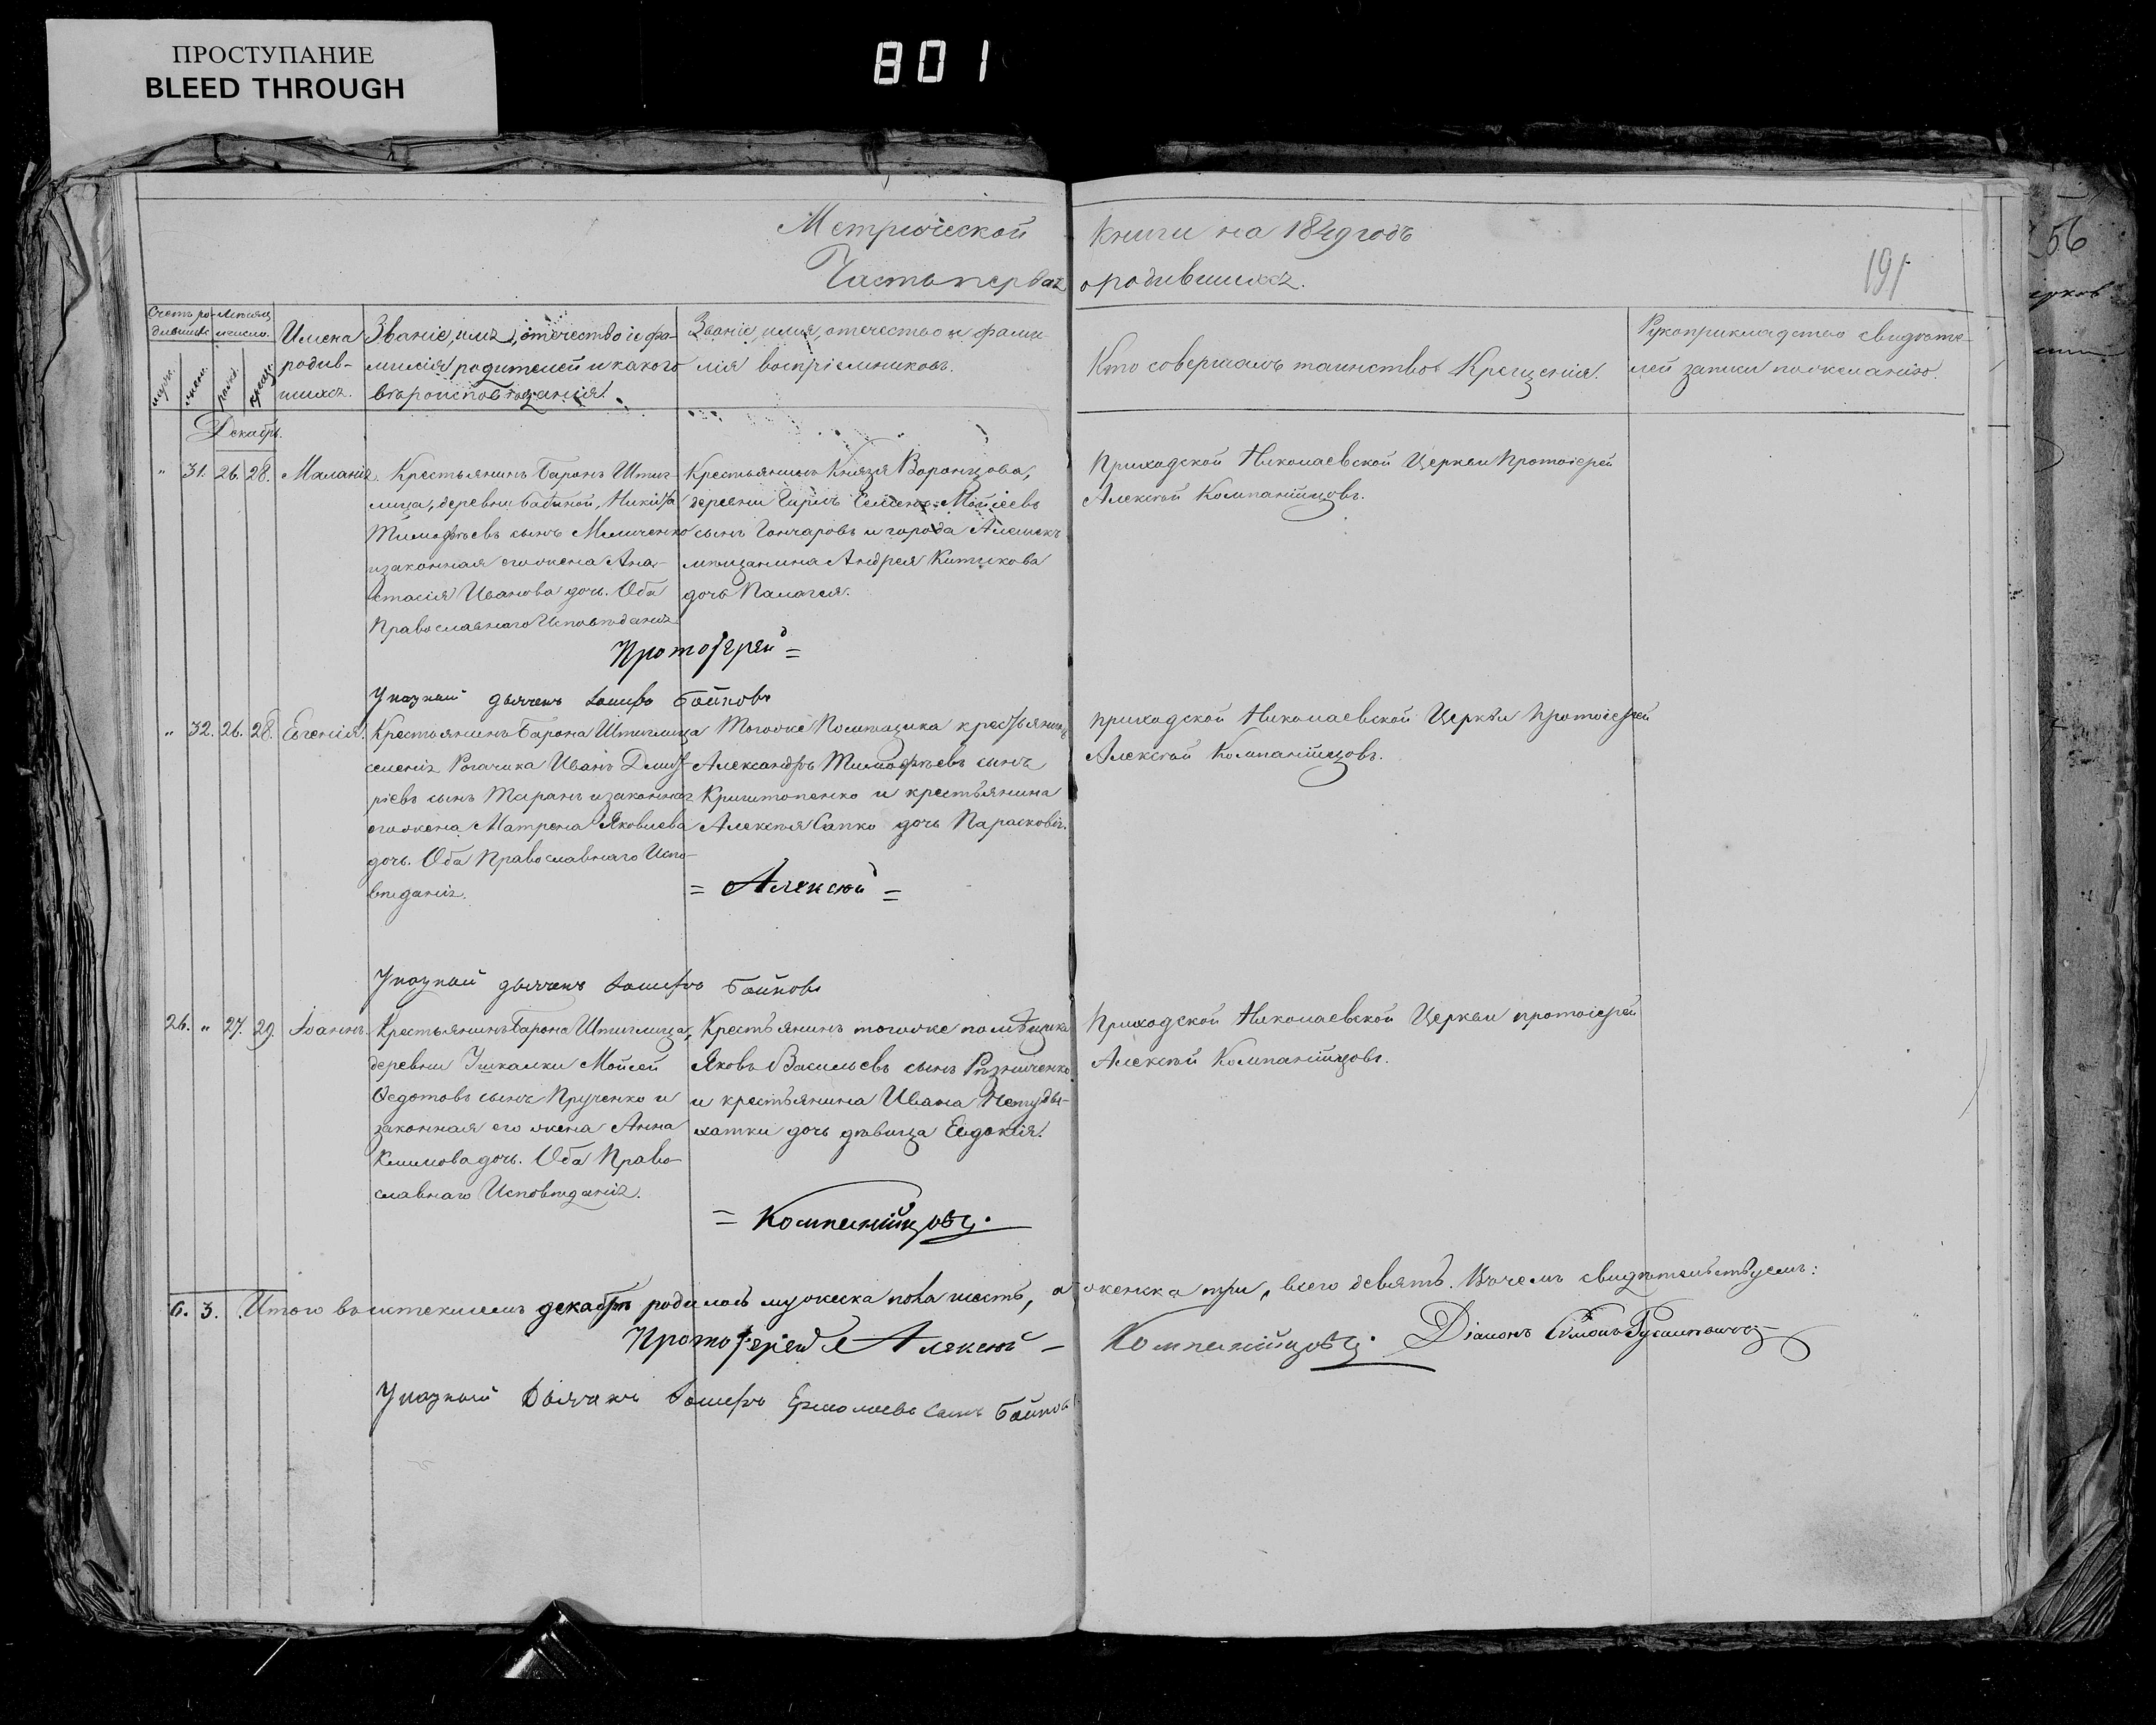 ПРОСТУПАНИЕ
BLEED THROUGH
801
56
Метрической Книги на 1849 годъ
Часть первая о родившихся.
191
Счетъ ро- Мѣсяц
дившихс и число.
муж. жен. рожд. крещ.
Имена
родив-
шихся.
Званіе, имя, отечество и фа-
милія родителей и какого
вѣроисповѣданія.
Званіе, имя, отечество и фами
лія воспріемниковъ.
Кто совершалъ таинство Крещенія.
Рукоприкладство свидѣте-
лей записи по желанію.
Декабрь.
" 31. 26. 28. Маланія
Крестьянинъ Баронъ Штиг-
лица, деревни Бабиной, Никита
Тимофѣевъ сынъ Мельниченко
и законная его жена Ана-
стасія Иванова дочь. Оба
Православнаго Исповѣданія
Крестьянинъ Князя Воронцова,
деревни Гирлъ Семенъ Мойсеевъ
сынъ Гончаровъ и города Алешекъ
мѣщанина Андрея Китикова
дочь Палагея.
Приходской Николаевской Церкви Протоіерей
Алексѣй Компанѣйцовъ.
Протоіерей =
Указный дьячекъ Іосифъ Бойковъ
" 32. 26. 28. Евгенія.
Крестьянинъ Барона Штиглица
селенія Рогачика Иванъ Дмит-
ріевъ сынъ Таранъ и законная
его жена Матрена Яковлева
дочь. Оба Православнаго Испо-
вѣданія.
Тогоже Помѣщика крестьянинъ
Александръ Тимофѣевъ сынъ
Криштопенко и крестьянина
Алексѣя Сапко дочь Парасковія.
Приходской Николаевской Церкви Протоіерей
Алексѣй Компанѣйцовъ.
= Алексѣй =
Указный дьячекъ Іосифъ Бойковъ
26. " 27. 29. Іоаннъ.
Крестьянинъ Барона Штиглица,
деревни Ушкалки Мойсей
Ѳедотовъ сынъ Прученко и
законная его жена Анна
Климова дочь. Оба Право-
славнаго Исповѣданія.
Крестьянинъ тогоже помѣщика
Яковъ Васильевъ сынъ Рѣзниченко
и крестьянина Ивана
хатки дочь дѣвица Евдокія.
Приходской Николаевской Церкви протоіерей
Алексѣй Компанѣйцовъ.
= Компанѣйцовъ.
6. 3. Итого въ истекшемъ декабрѣ родилось мужеска пола шесть, а женска три, всего девять. Въ чемъ свидѣтельствуемъ:
Протоіерей Алексѣй – Компанѣйцовъ. Діаконъ Симонъ
Указный Дьячекъ Іосифъ Ермолаевъ сынъ Бойковъ